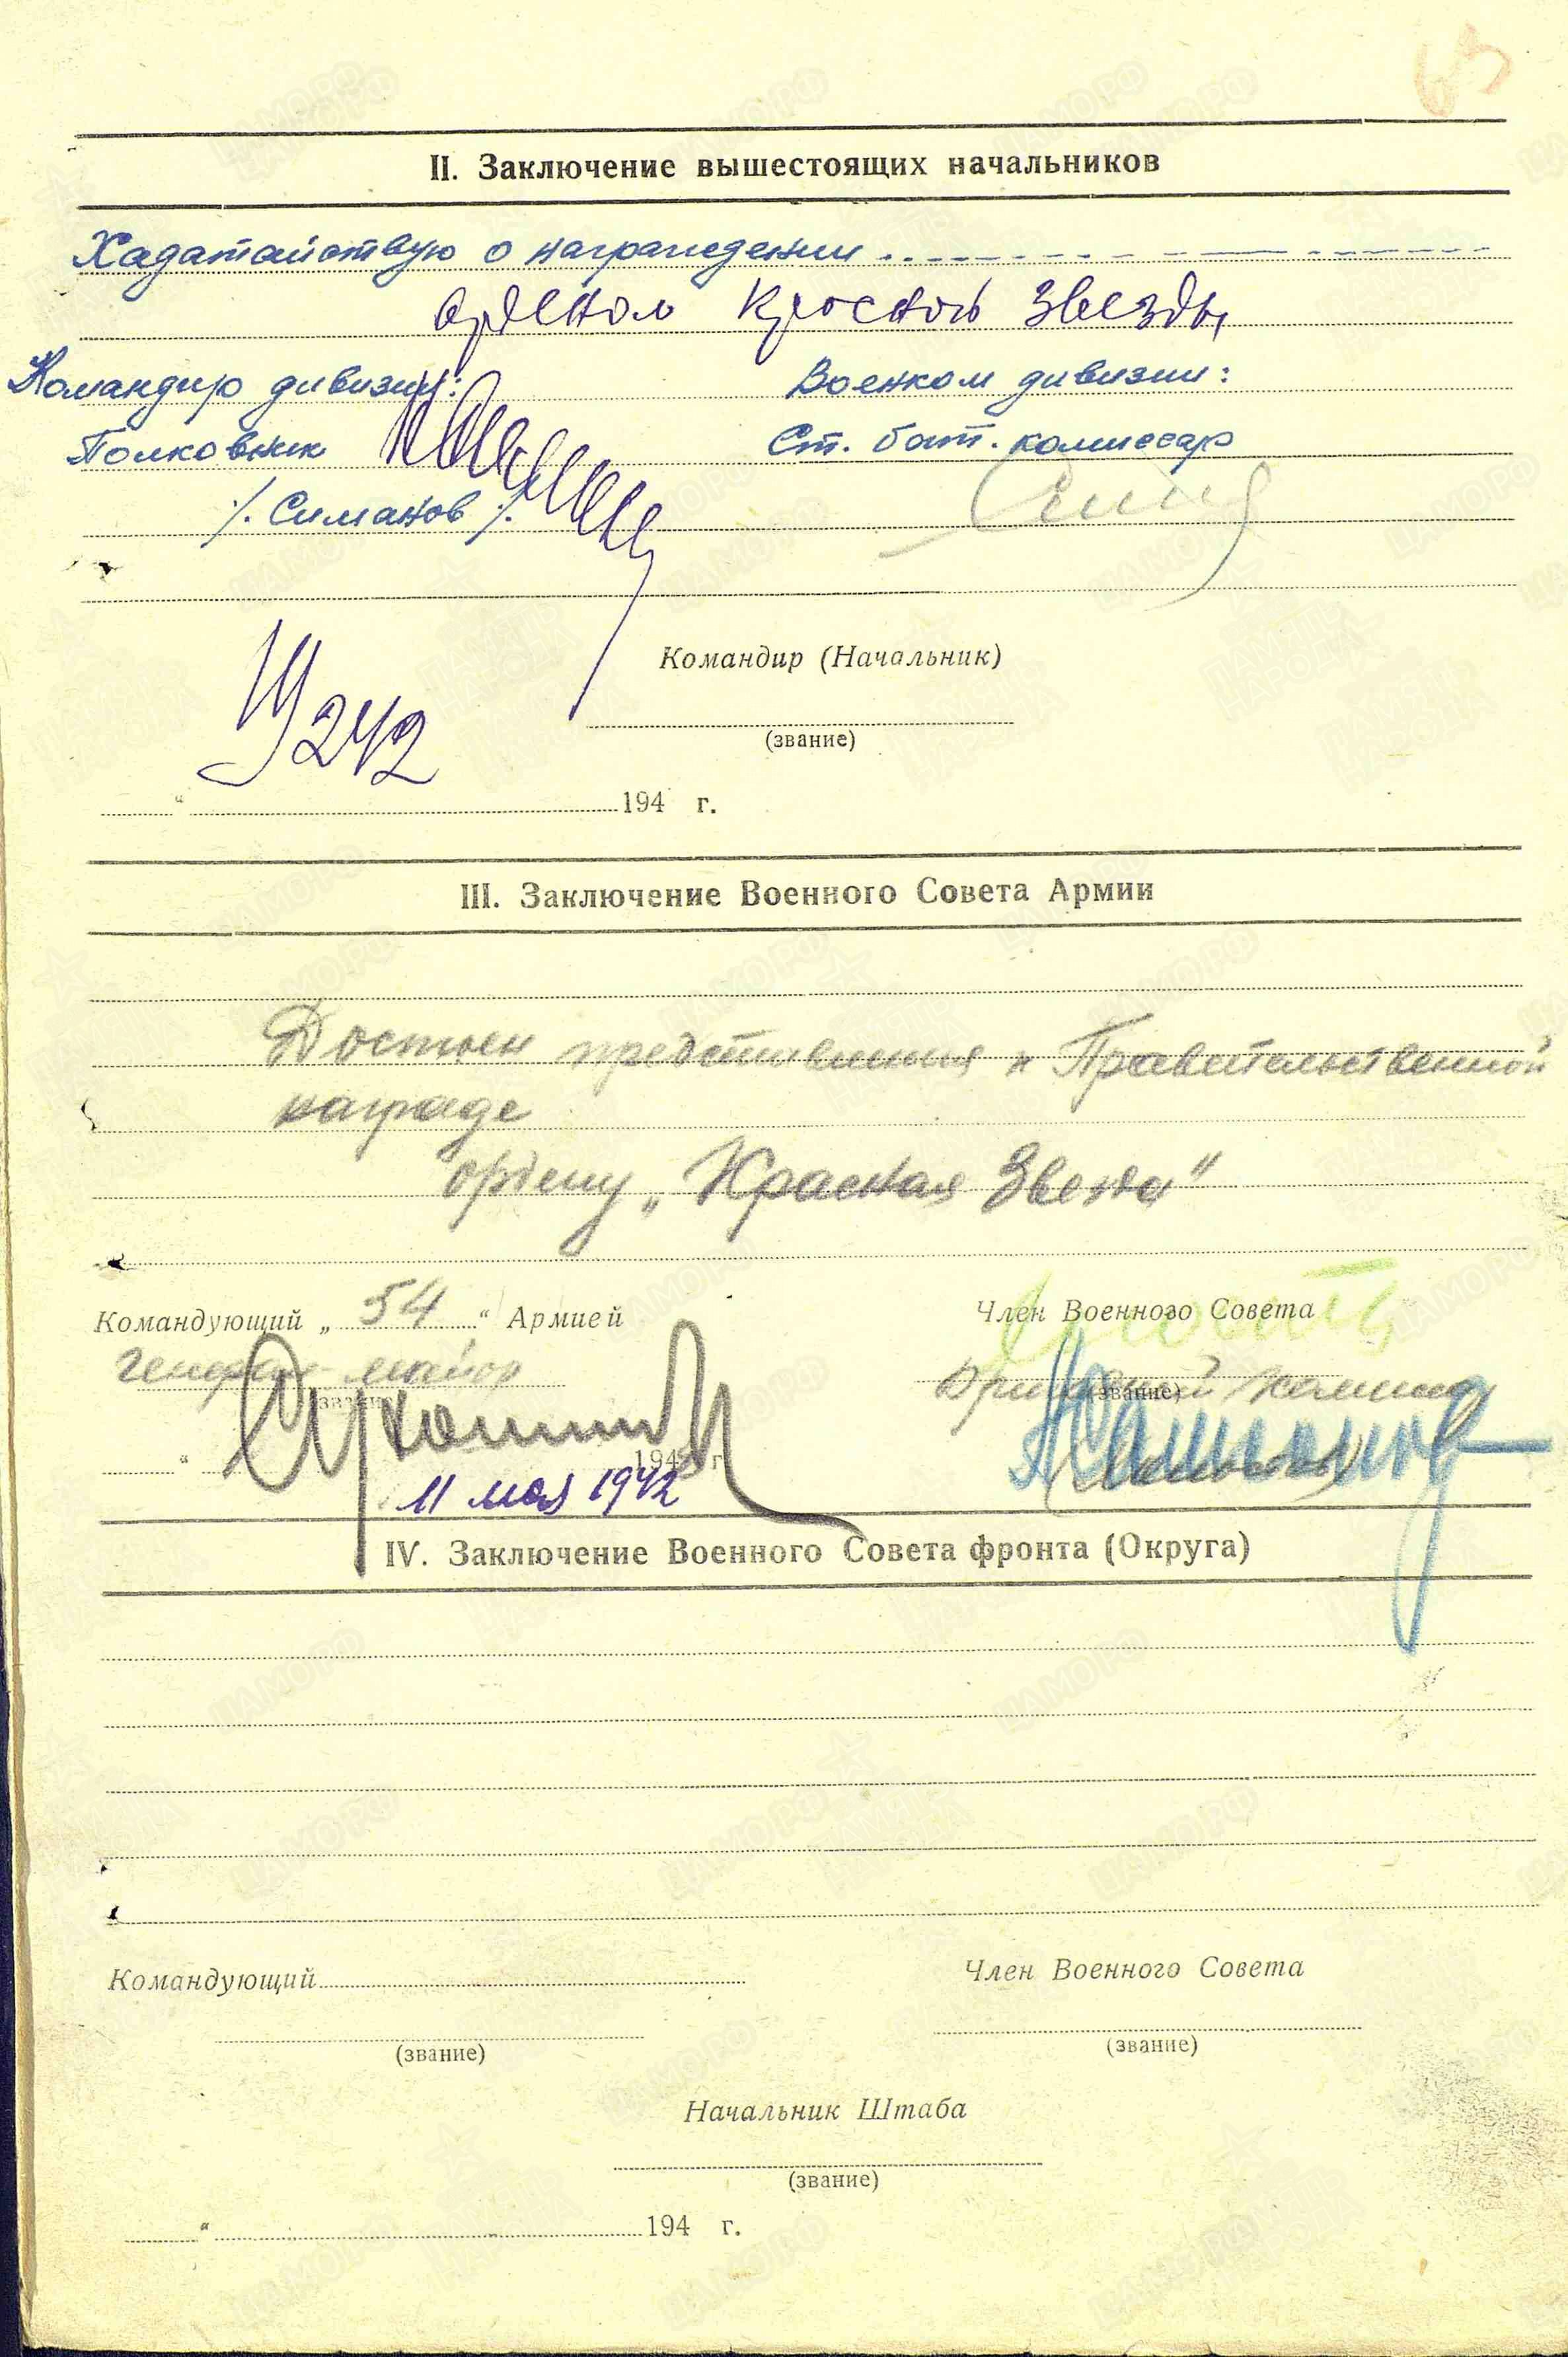 63
II. Заключение вышестоящих начальников
Хадатайствую о награждении
орденом Красной Звезды
Командир дивизии: Военком дивизии:
Полковник Ст. бат. комиссар
/. Симанов /.
Командир (Начальник)
(звание)
242
„ “ 194 г.
III. Заключение Военного Совета Армии
Достоен представления к Правительственной
награде
ордену „Красная Звезда“
Командующий „ 54 “ Армией Член Военного Совета
Генерал-майор
(звание) (звание)
„ “ 194 г.
11 мая 1942
IV. Заключение Военного Совета фронта (Округа)
Командующий Член Военного Совета
(звание) (звание)
Начальник Штаба
(звание)
„ “ 194 г.